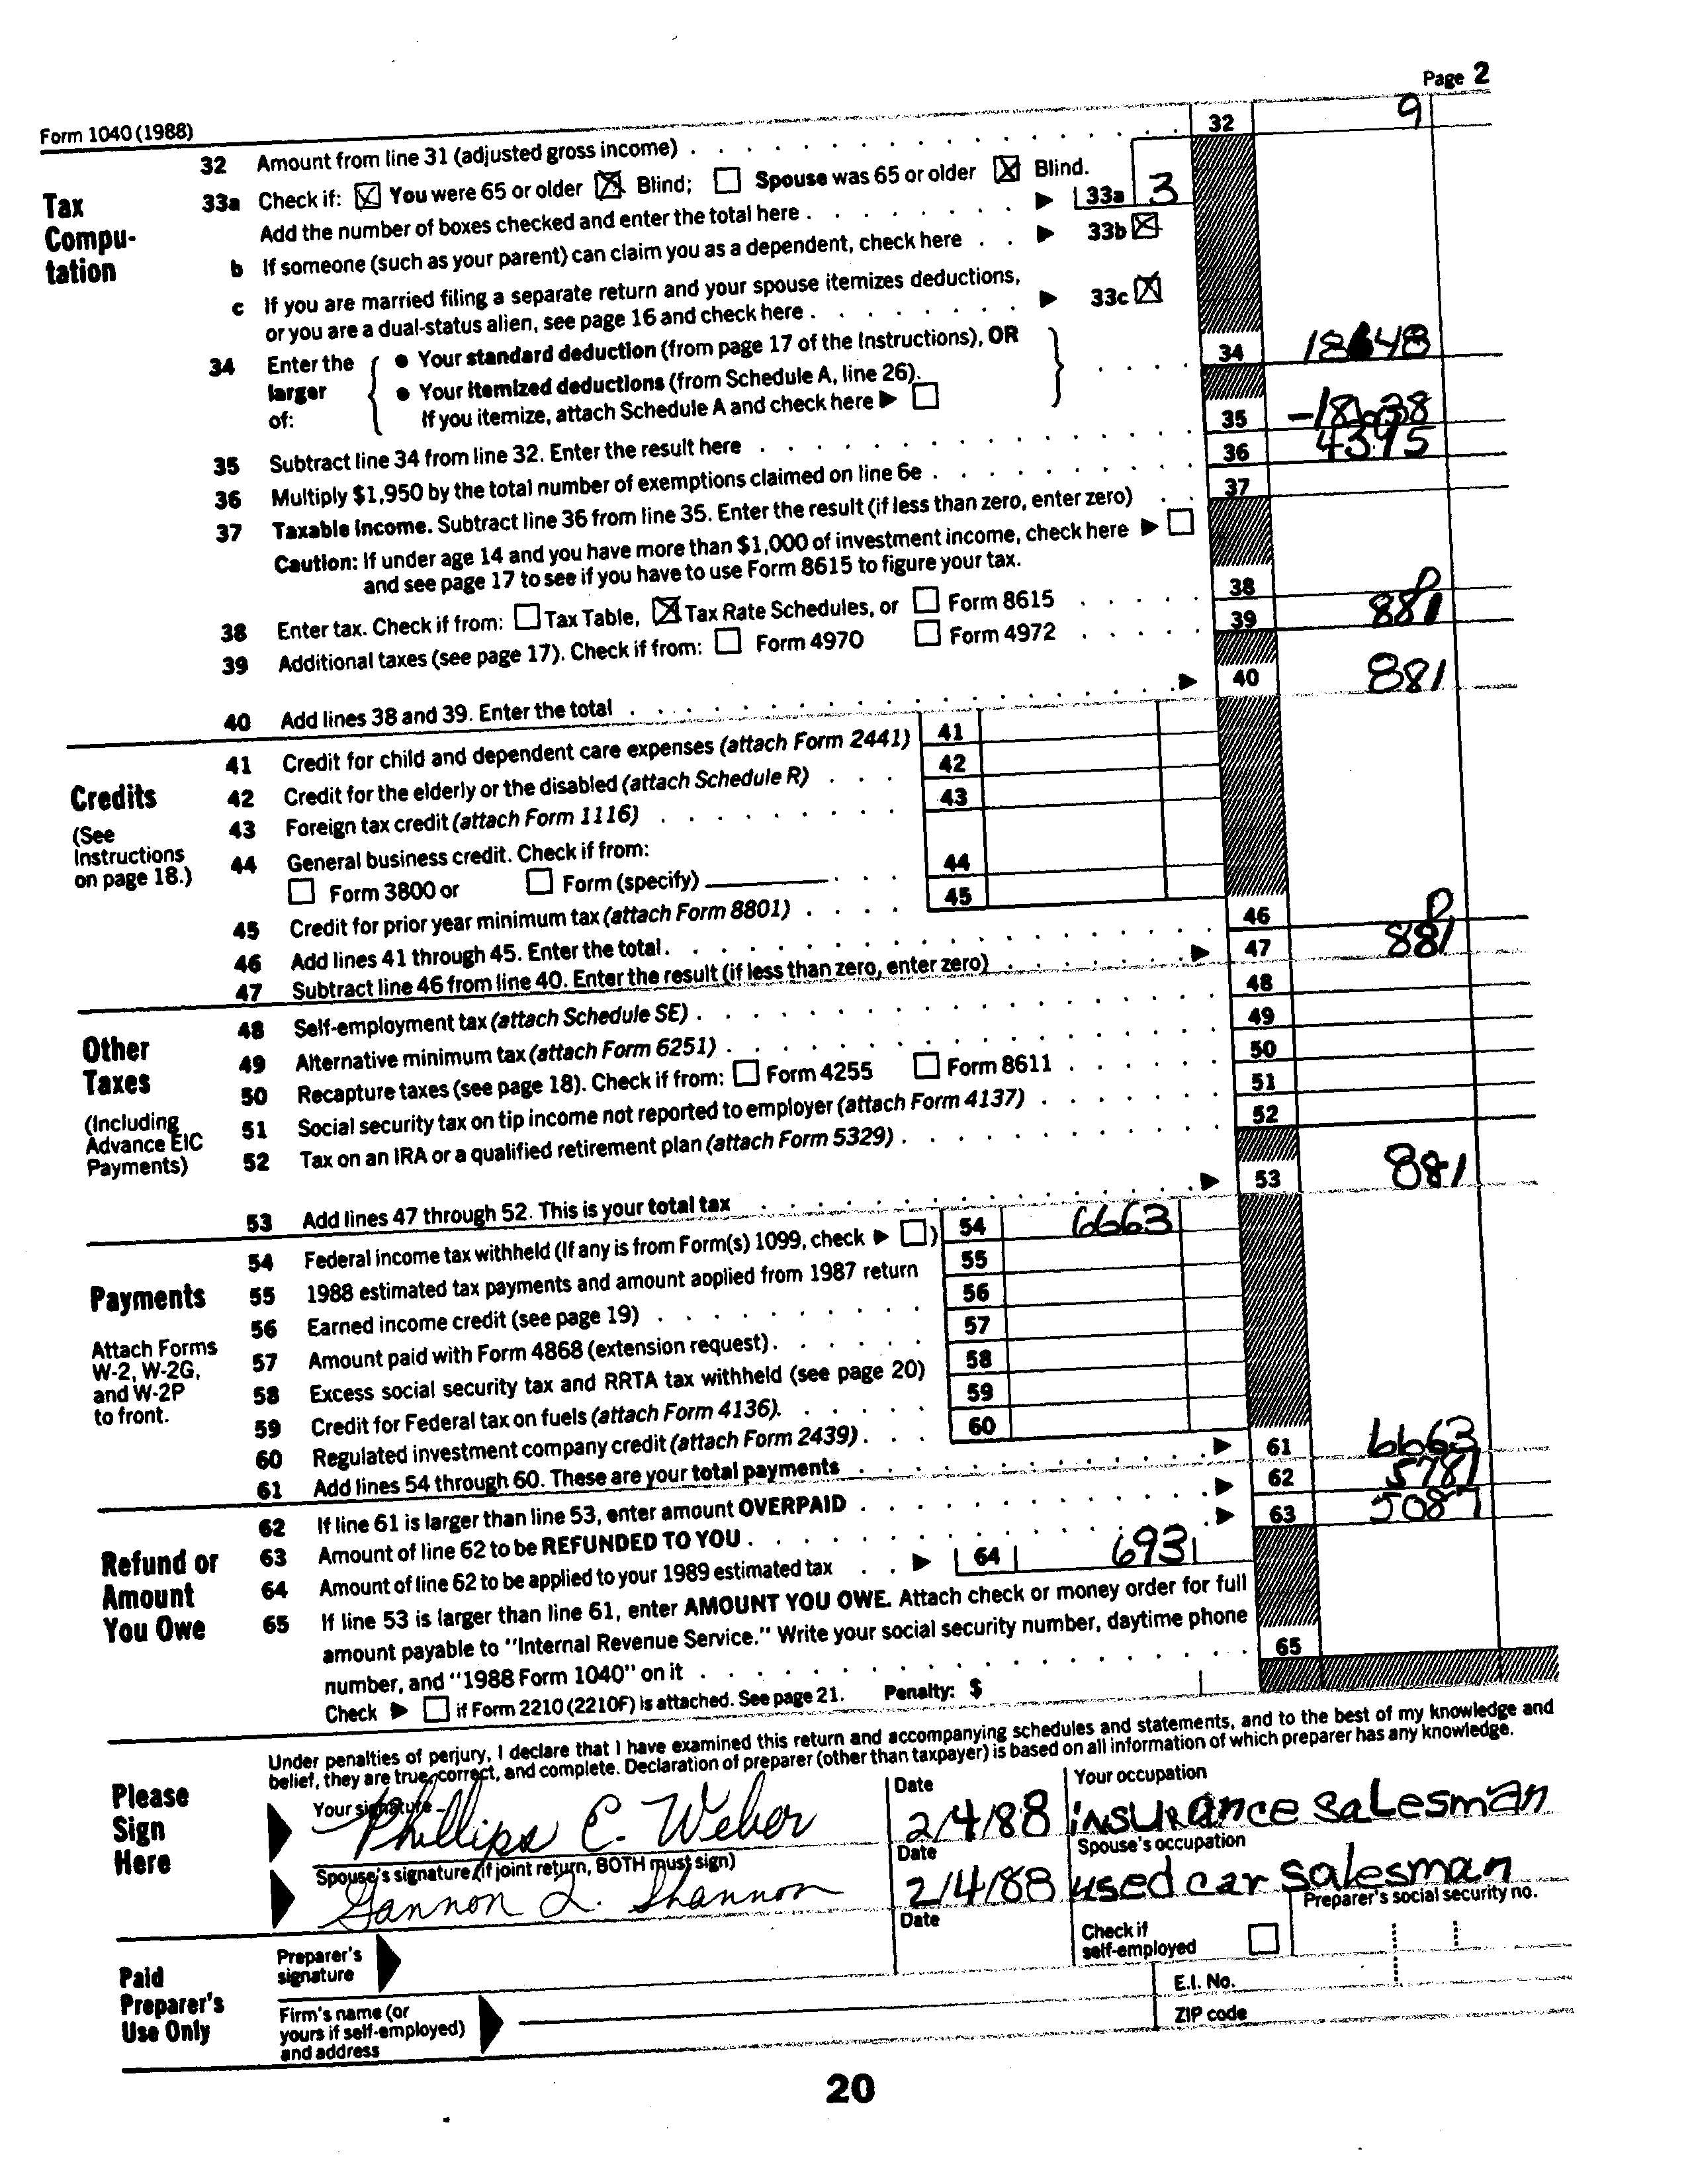 Page 2
Form 1040 (1988)
32 Amount from line 31 (adjusted gross income) 32 9
Tax Compu-tation
33a Check if: You were 65 or older Blind; Spouse was 65 or older Blind.
Add the number of boxes checked and enter the total here 33a 3
b If someone (such as your parent) can claim you as a dependent, check here 33b
c If you are married filing a separate return and your spouse itemizes deductions,
or you are a dual-status alien, see page 16 and check here 33c
34 Enter the larger of:
• Your standard deduction (from page 17 of the Instructions), OR
• Your itemized deductions (from Schedule A, line 26).
If you itemize, attach Schedule A and check here
34
35 Subtract line 34 from line 32. Enter the result here 35
36 Multiply $1,950 by the total number of exemptions claimed on line 6e 36 4395
37 Taxable income. Subtract line 36 from line 35. Enter the result (if less than zero, enter zero) 37
Caution: If under age 14 and you have more than $1,000 of investment income, check here
and see page 17 to see if you have to use Form 8615 to figure your tax.
38 Enter tax. Check if from: Tax Table, Tax Rate Schedules, or Form 8615 38
39 Additional taxes (see page 17). Check if from: Form 4970 Form 4972 39 881
40 Add lines 38 and 39. Enter the total 40 881
Credits
(See Instructions on page 18.)
41 Credit for child and dependent care expenses (attach Form 2441) 41
42 Credit for the elderly or the disabled (attach Schedule R) 42
43 Foreign tax credit (attach Form 1116) 43
44 General business credit. Check if from:
Form 3800 or Form (specify) 44
45 Credit for prior year minimum tax (attach Form 8801) 45
46 Add lines 41 through 45. Enter the total 46
47 Subtract line 46 from line 40. Enter the result (if less than zero, enter zero) 47 881
Other Taxes
(Including Advance EIC Payments)
48 Self-employment tax (attach Schedule SE) 48
49 Alternative minimum tax (attach Form 6251) 49
50 Recapture taxes (see page 18). Check if from: Form 4255 Form 8611 50
51 Social security tax on tip income not reported to employer (attach Form 4137) 51
52 Tax on an IRA or a qualified retirement plan (attach Form 5329) 52
53 Add lines 47 through 52. This is your total tax 53 881
Payments
Attach Forms W-2, W-2G, and W-2P to front.
54 Federal income tax withheld (If any is from Form(s) 1099, check ) 54 6663
55 1988 estimated tax payments and amount applied from 1987 return 55
56 Earned income credit (see page 19) 56
57 Amount paid with Form 4868 (extension request) 57
58 Excess social security tax and RRTA tax withheld (see page 20) 58
59 Credit for Federal tax on fuels (attach Form 4136). 59
60 Regulated investment company credit (attach Form 2439) 60
61 Add lines 54 through 60. These are your total payments 61 6663
Refund or Amount You Owe
62 If line 61 is larger than line 53, enter amount OVERPAID 62 5781
63 Amount of line 62 to be REFUNDED TO YOU 63 5087
64 Amount of line 62 to be applied to your 1989 estimated tax 64 693
65 If line 53 is larger than line 61, enter AMOUNT YOU OWE. Attach check or money order for full
amount payable to "Internal Revenue Service." Write your social security number, daytime phone
number, and "1988 Form 1040" on it 65
Check if Form 2210 (2210F) is attached. See page 21. Penalty: $
Please Sign Here
Under penalties of perjury, I declare that I have examined this return and accompanying schedules and statements, and to the best of my knowledge and
belief, they are true, correct, and complete. Declaration of preparer (other than taxpayer) is based on all information of which preparer has any knowledge.
Your signature Date Your occupation
Phillips C. Weber 2/4/88 insurance salesman
Spouse's signature (if joint return, BOTH must sign) Date Spouse's occupation
Gannon L. Shannon 2/4/88 used car salesman
Paid Preparer's Use Only
Preparer's signature Date Check if self-employed Preparer's social security no.
Firm's name (or yours if self-employed) and address
E.I. No.
ZIP code
20